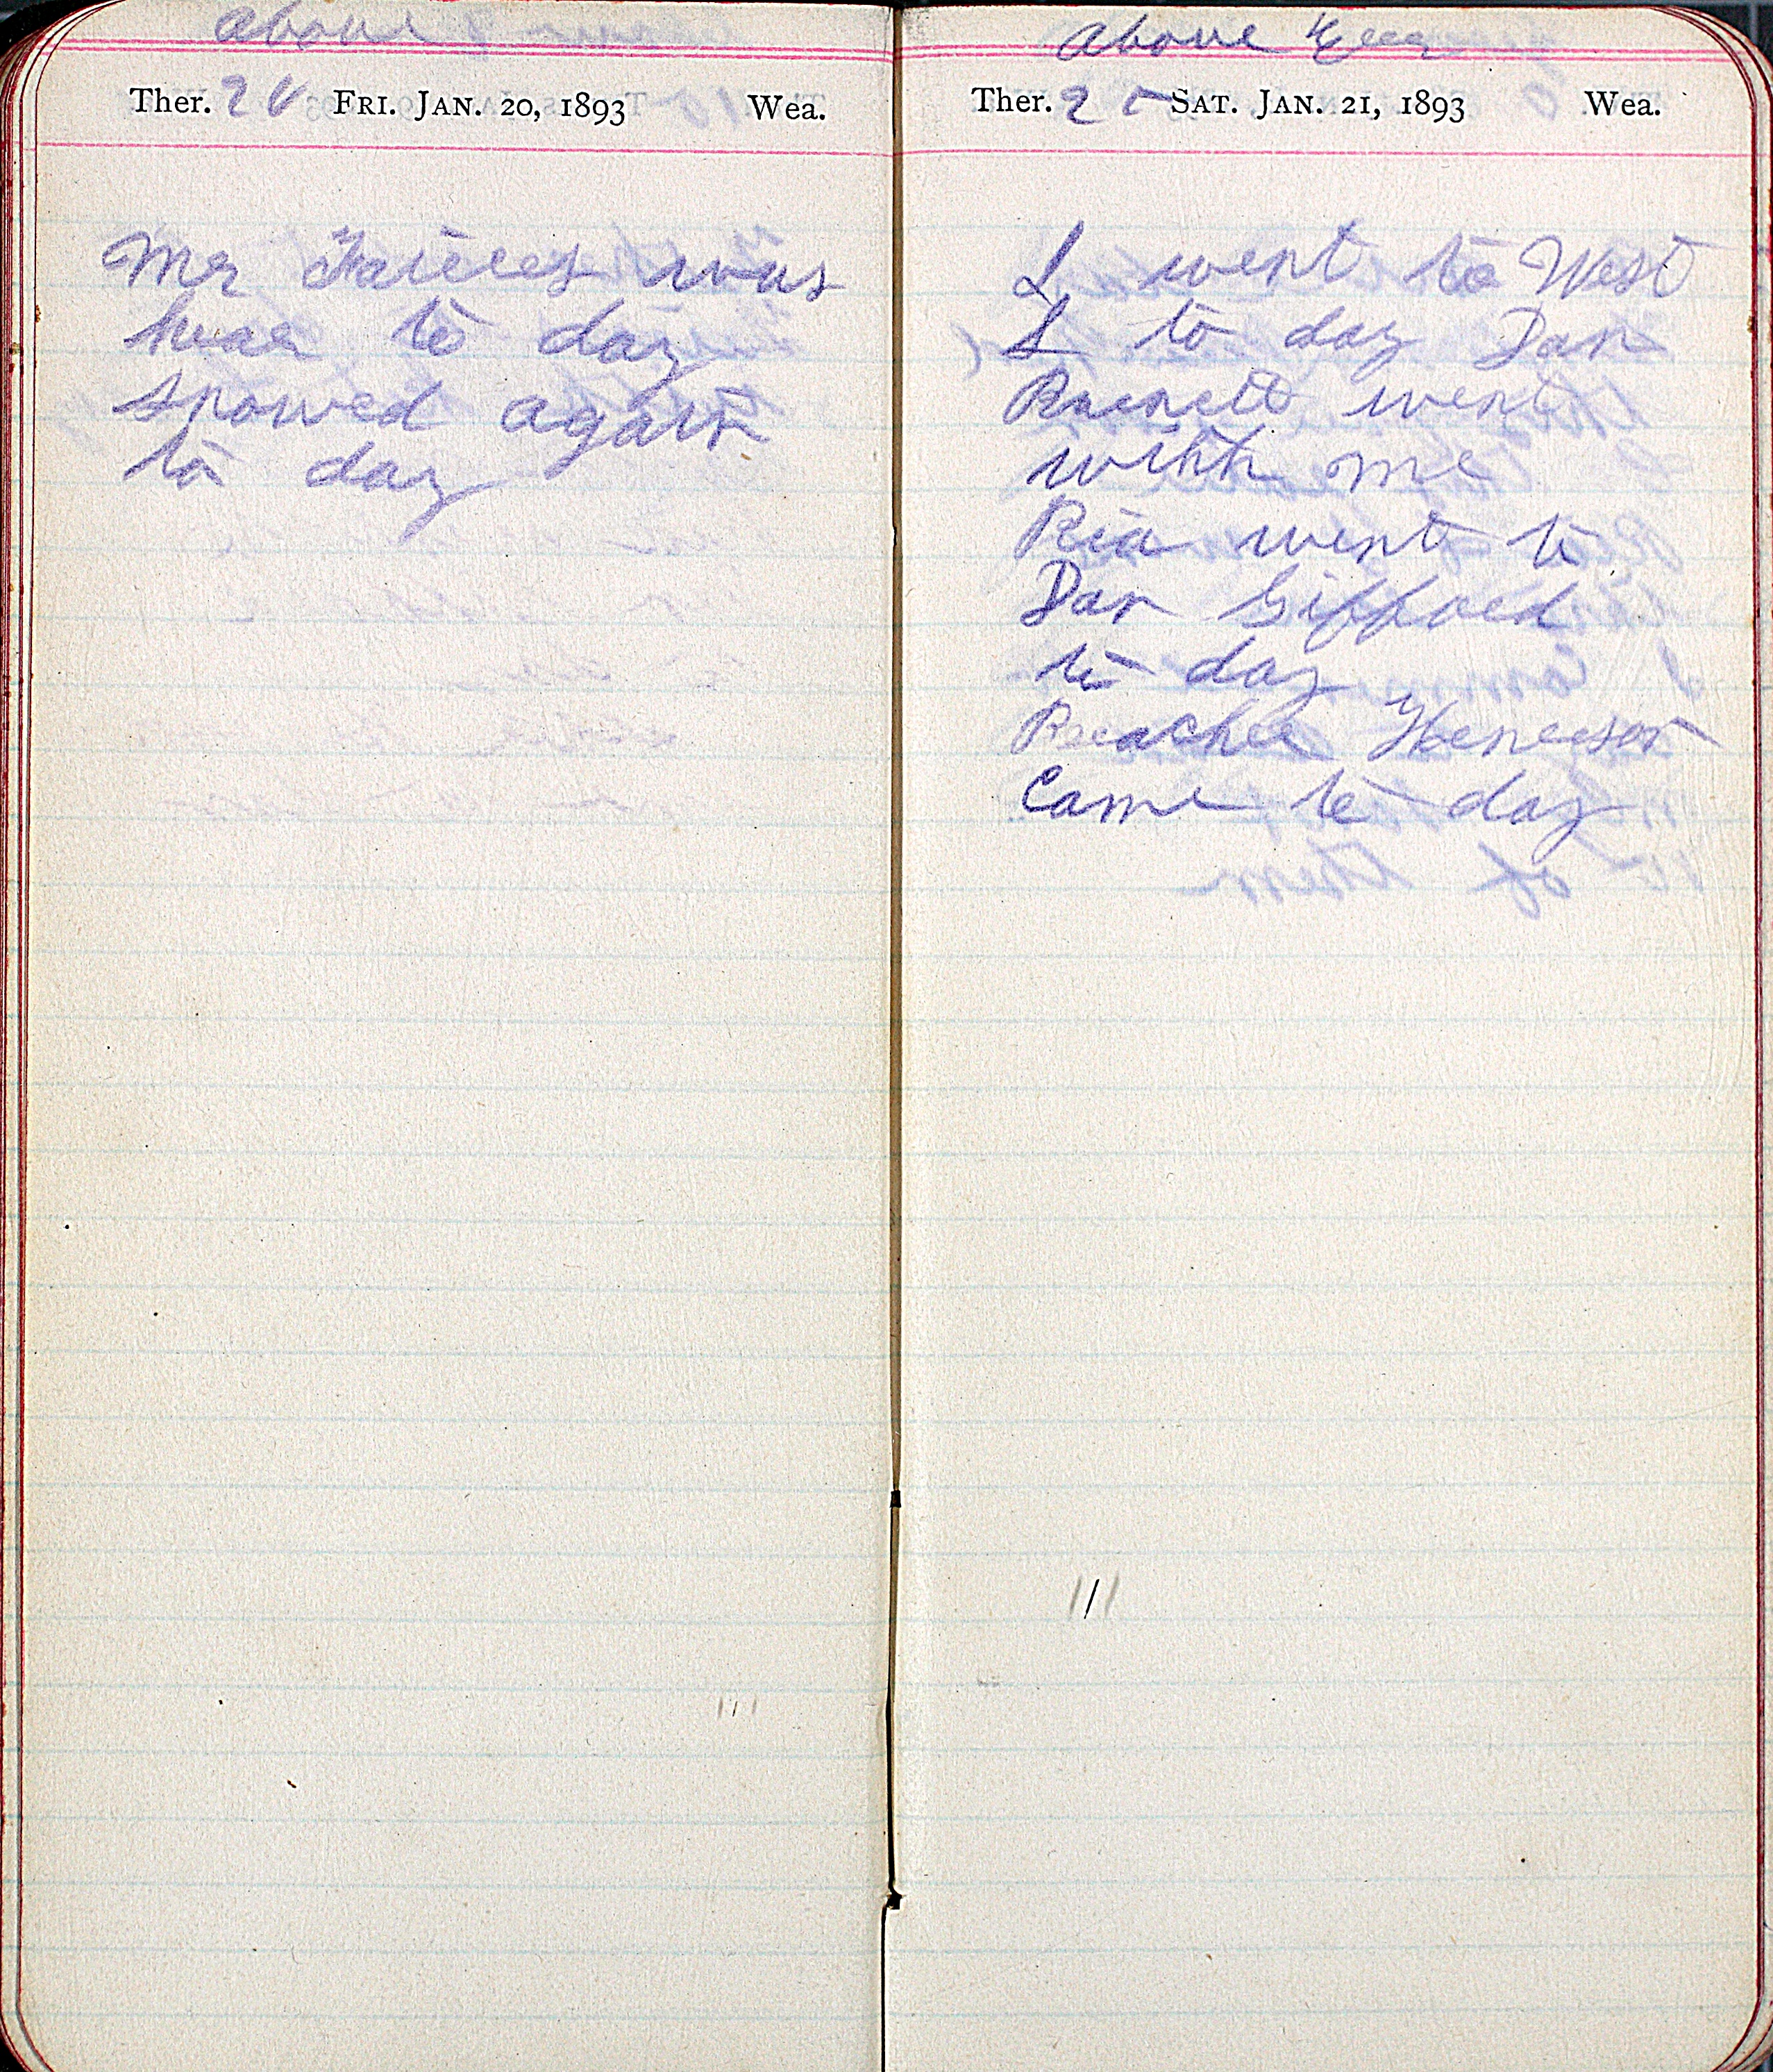 above
Ther. 20 FRI. JAN. 20, 1893 Wea.
Mr was
hear to day
snowed again
to day
above
Ther. 25 SAT. JAN. 21, 1893 Wea.
I went to West
to day Dan
went
with me
Ria went to
Dan Gifford
to day
Came to day